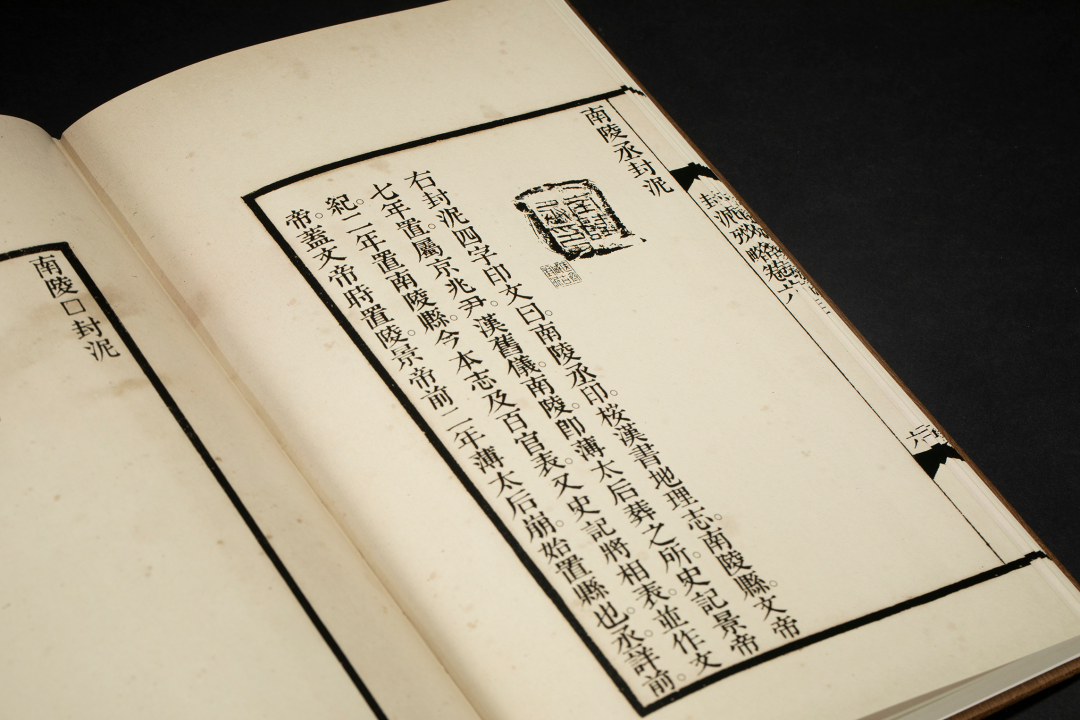 封泥攷略卷六
南陵丞封泥
右封泥四字印文曰。南陵丞印。桉漢書地理志。南陵縣。文帝
七年置。屬京兆尹。漢舊儀。南陵。卽薄太后葬之所。史記景帝
紀。二年置南陵縣。今本志及百官表。又史記將相表。並作文
帝。蓋文帝時置陵。景帝前二年薄太后崩。始置縣也。丞詳前。
南陵□封泥